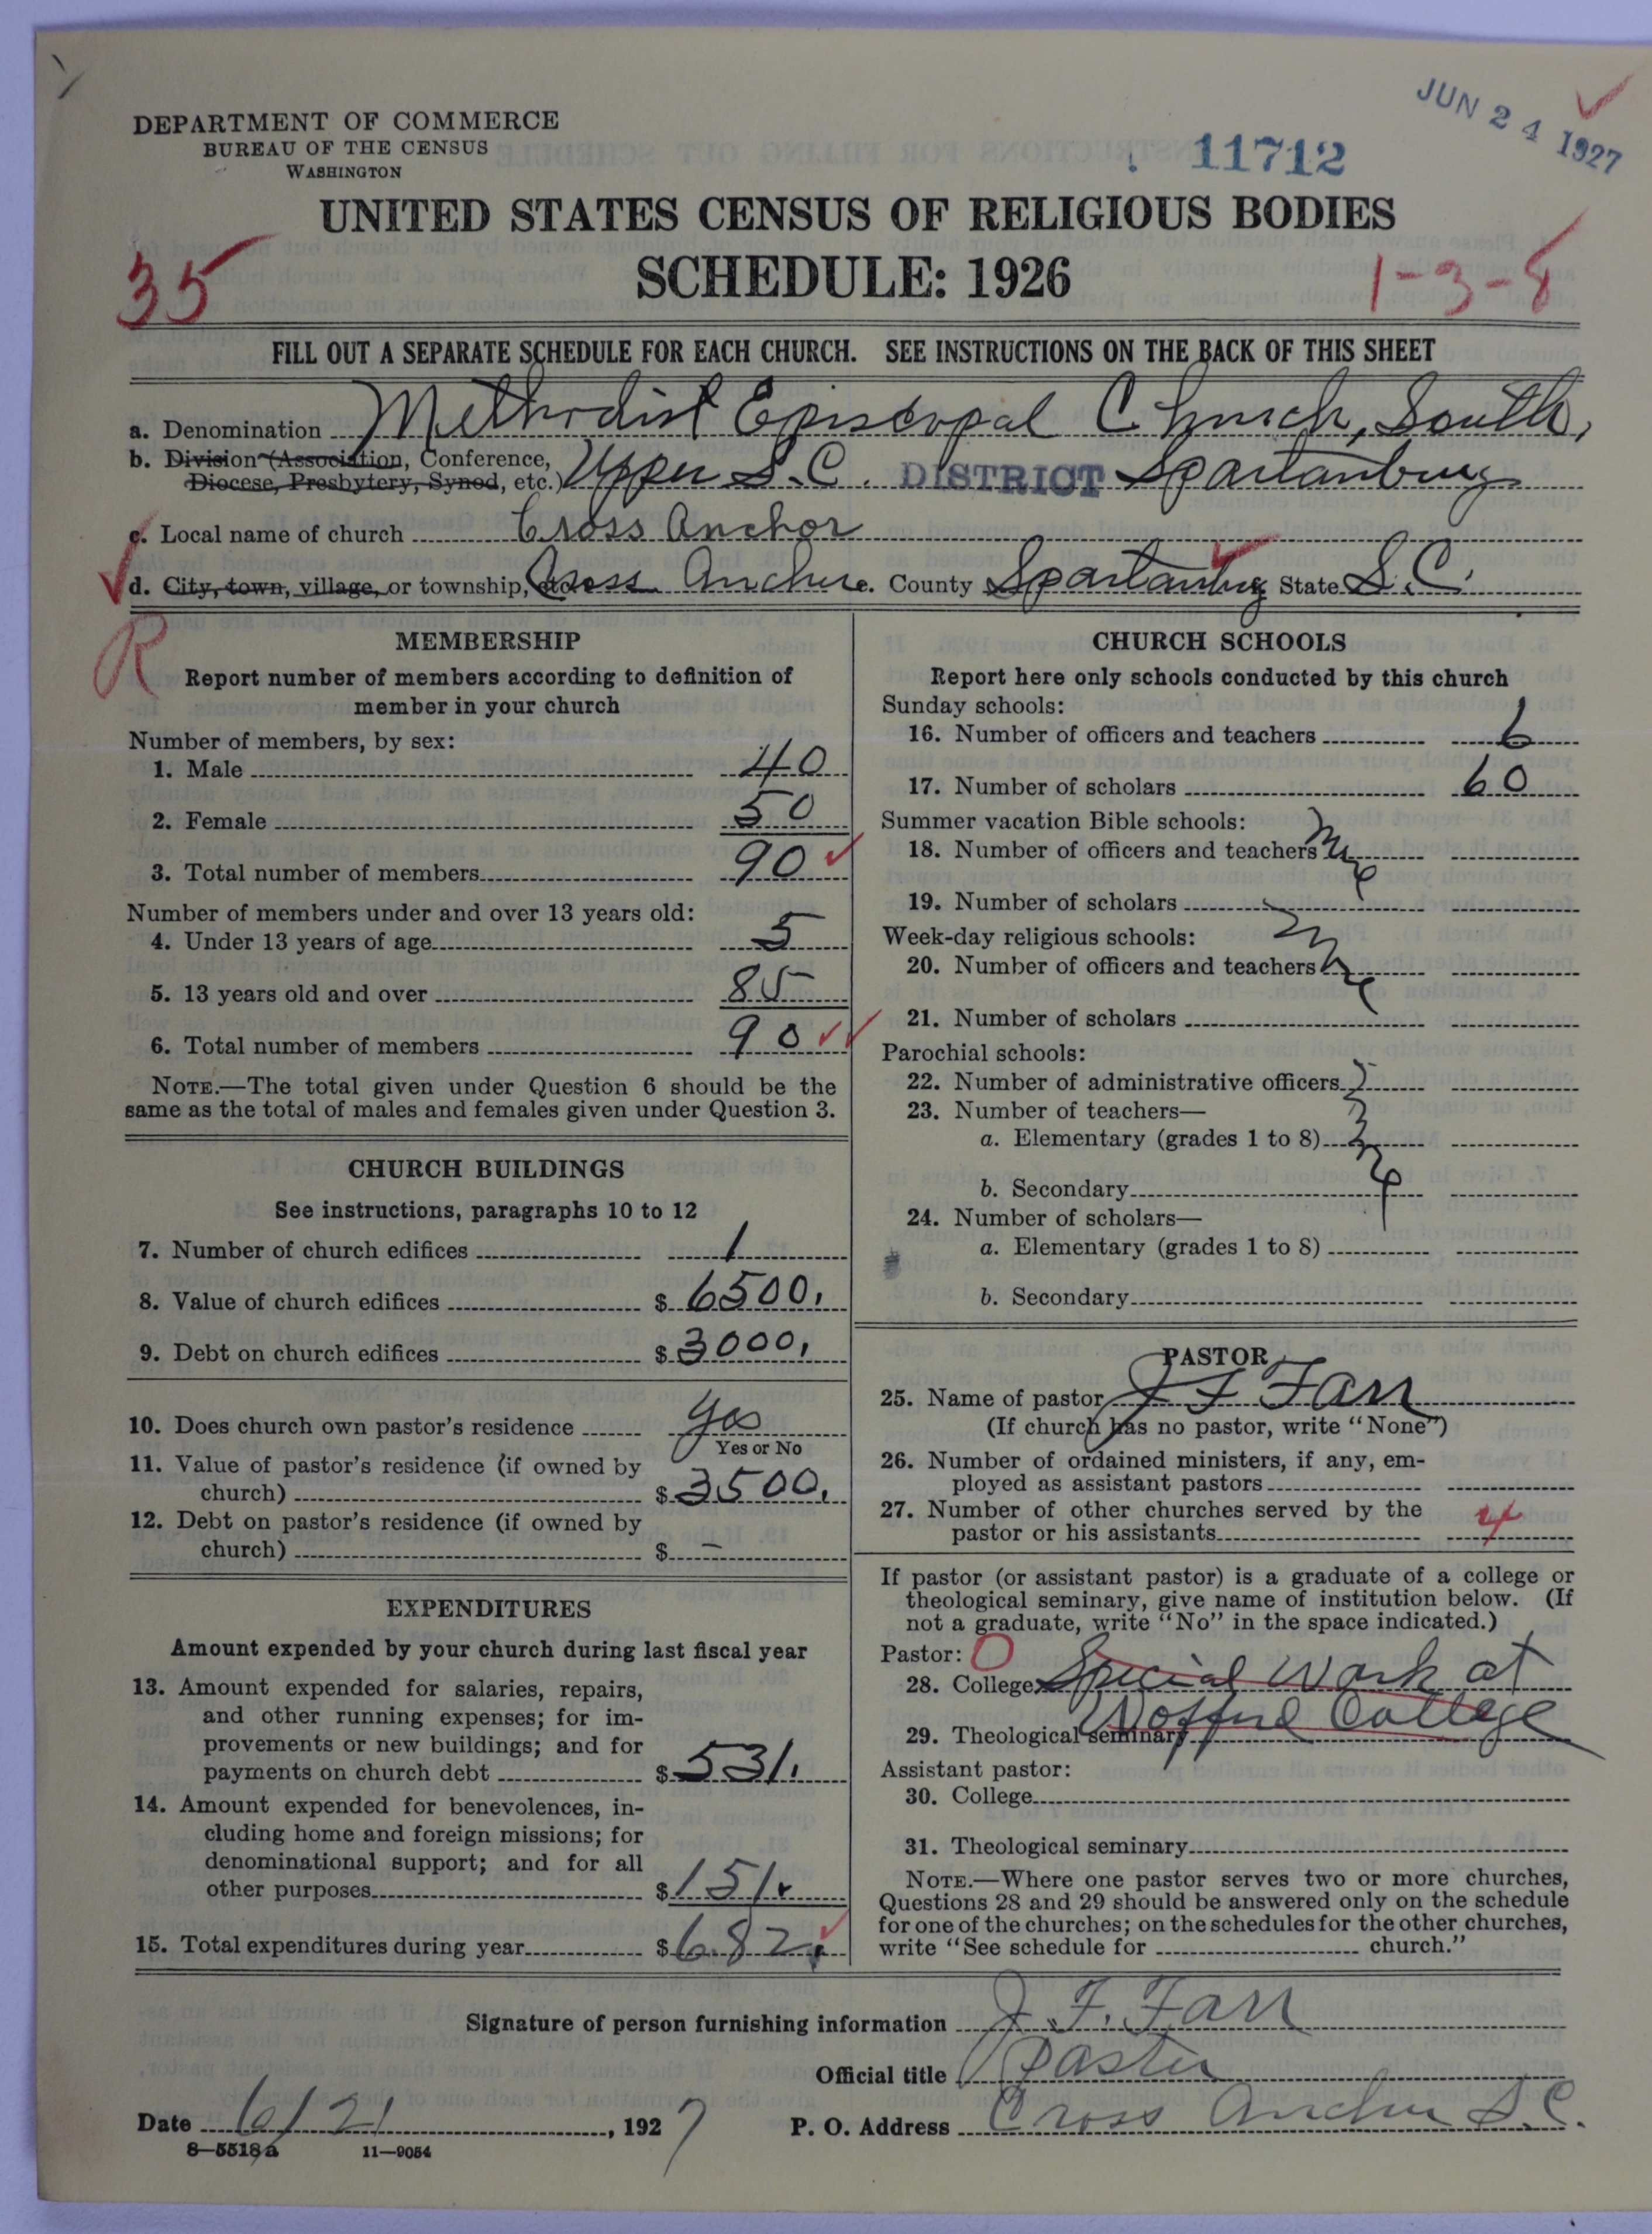 JUN 24 1927
DEPARTMENT OF COMMERCE
BUREAU OF THE CENSUS
WASHINGTON
11712
UNITED STATES CENSUS OF RELIGIOUS BODIES
SCHEDULE: 1926
35
1-3-8
FILL OUT A SEPARATE SCHEDULE FOR EACH CHURCH. SEE INSTRUCTIONS ON THE BACK OF THIS SHEET
a. Denomination Methodist Episcopal Church, South,
b. Division (Association, Conference, Diocese, Presbytery, Synod, etc.) Upper S.C. DISTRICT Spartanburg
c. Local name of church Cross Anchor
d. City, town, village, or township, etc. Cross Anchor e. County Spartanburg State S.C.
R
MEMBERSHIP
Report number of members according to definition of
member in your church
Number of members, by sex:
1. Male 40
2. Female 50
3. Total number of members 90
Number of members under and over 13 years old:
4. Under 13 years of age 5
5. 13 years old and over 85
6. Total number of members 90
NOTE.—The total given under Question 6 should be the
same as the total of males and females given under Question 3.
CHURCH BUILDINGS
See instructions, paragraphs 10 to 12
7. Number of church edifices 1
8. Value of church edifices $ 6500.
9. Debt on church edifices $ 3000.
10. Does church own pastor's residence yes
Yes or No
11. Value of pastor's residence (if owned by
church) $ 3500.
12. Debt on pastor's residence (if owned by
church) $ –
EXPENDITURES
Amount expended by your church during last fiscal year
13. Amount expended for salaries, repairs,
and other running expenses; for im-
provements or new buildings; and for
payments on church debt $ 531.
14. Amount expended for benevolences, in-
cluding home and foreign missions; for
denominational support; and for all
other purposes $ 151.
15. Total expenditures during year $ 682.
CHURCH SCHOOLS
Report here only schools conducted by this church
Sunday schools:
16. Number of officers and teachers 6
17. Number of scholars 60
Summer vacation Bible schools:
18. Number of officers and teachers
19. Number of scholars
Week-day religious schools:
20. Number of officers and teachers
21. Number of scholars
Parochial schools:
22. Number of administrative officers
23. Number of teachers—
a. Elementary (grades 1 to 8)
b. Secondary
24. Number of scholars—
a. Elementary (grades 1 to 8)
b. Secondary
PASTOR
25. Name of pastor J F Farr
(If church has no pastor, write "None")
26. Number of ordained ministers, if any, em-
ployed as assistant pastors
27. Number of other churches served by the
pastor or his assistants 4
If pastor (or assistant pastor) is a graduate of a college or
theological seminary, give name of institution below. (If
not a graduate, write "No" in the space indicated.)
Pastor: O
28. College Special Work at
29. Theological seminary Wofford College
Assistant pastor:
30. College
31. Theological seminary
NOTE.—Where one pastor serves two or more churches,
Questions 28 and 29 should be answered only on the schedule
for one of the churches; on the schedules for the other churches,
write "See schedule for church."
Signature of person furnishing information J. F. Farr
Official title Pastor
Date 6/21, 1927 P. O. Address Cross Anchor S.C.
8—5518a 11—9054